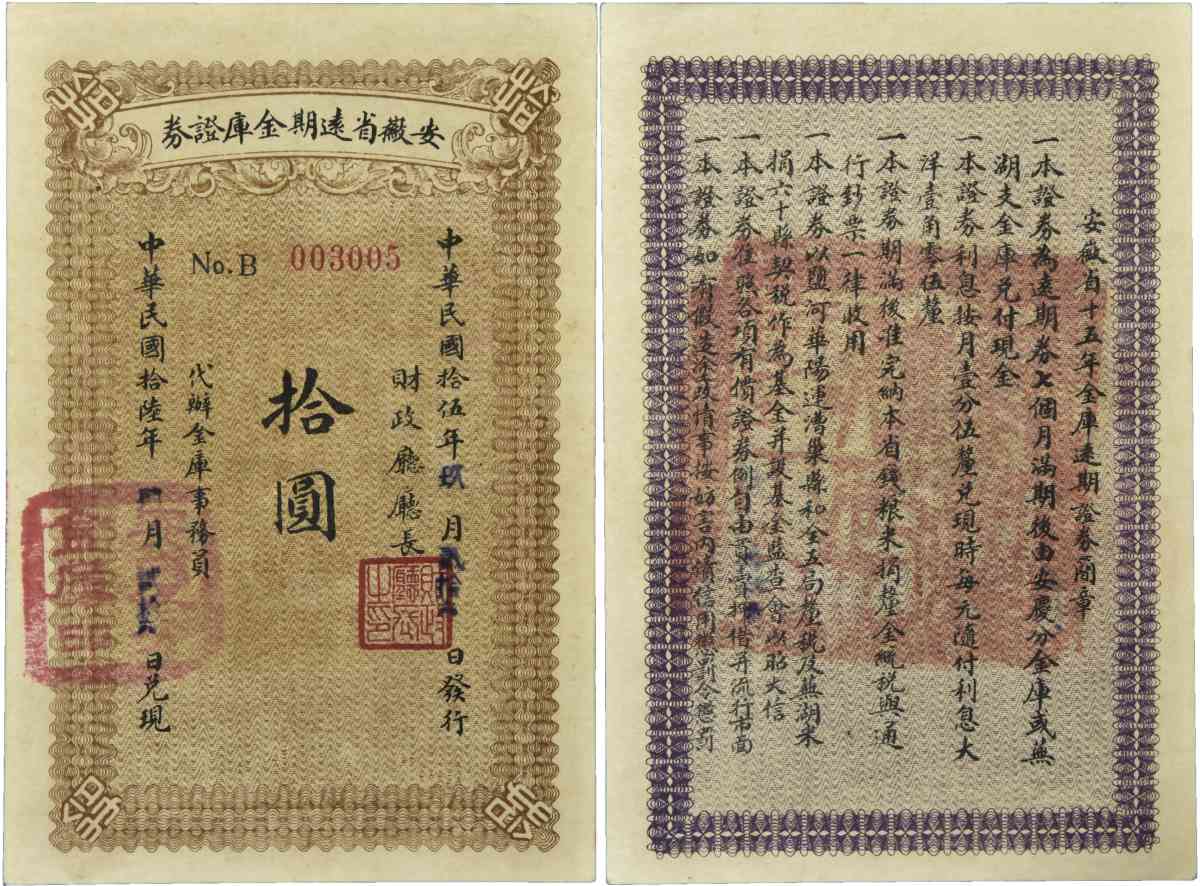 安徽省遠期金庫證券
No. B 003005
中華民國拾伍年玖月 日發行
財政廳廳長
拾圓
代辦金庫事務員
中華民國拾陸年 月 日兌現
拾
拾
拾
拾
財政廳廳長之印
安徽省十五年金庫遠期證券簡章
一本證券為遠期券七個月滿期後由安慶分金庫或蕪
湖支金庫兌付現金
一本證券利息按月壹分伍釐兌現時每元隨付利息大
洋壹角零伍釐
一本證券期滿後准完納本省錢粮米捐釐金賦稅與通
行鈔票一律收用
一本證券以鹽河華陽運漕巢縣和全五局釐稅及蕪湖米
捐六十縣契稅作為基金并設基金監 會以昭大信
一本證券准照各項有價證券例自由買賣抵借并流行市面
一本證券如有假造塗改情事按妨害內債信用懲罰令懲罰